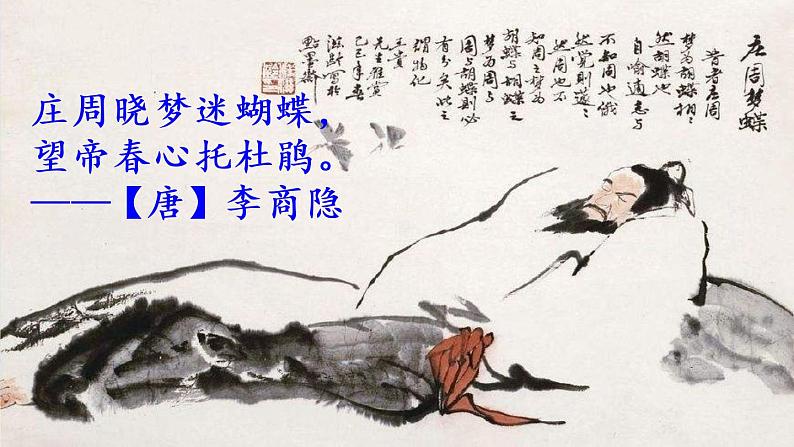 庄周晓梦迷蝴蝶，
望帝春心托杜鹃。
——【唐】李商隐
庄周梦蝶
昔者庄周
梦为胡蝶栩々
然胡蝶也
自喻适志与
不知周也俄
然觉则蘧々
然周也不
知周之梦为
胡蝶与胡蝶之
梦为周与
周与胡蝶则必
有分矣此之
谓物化
先生雅赏
点墨斋